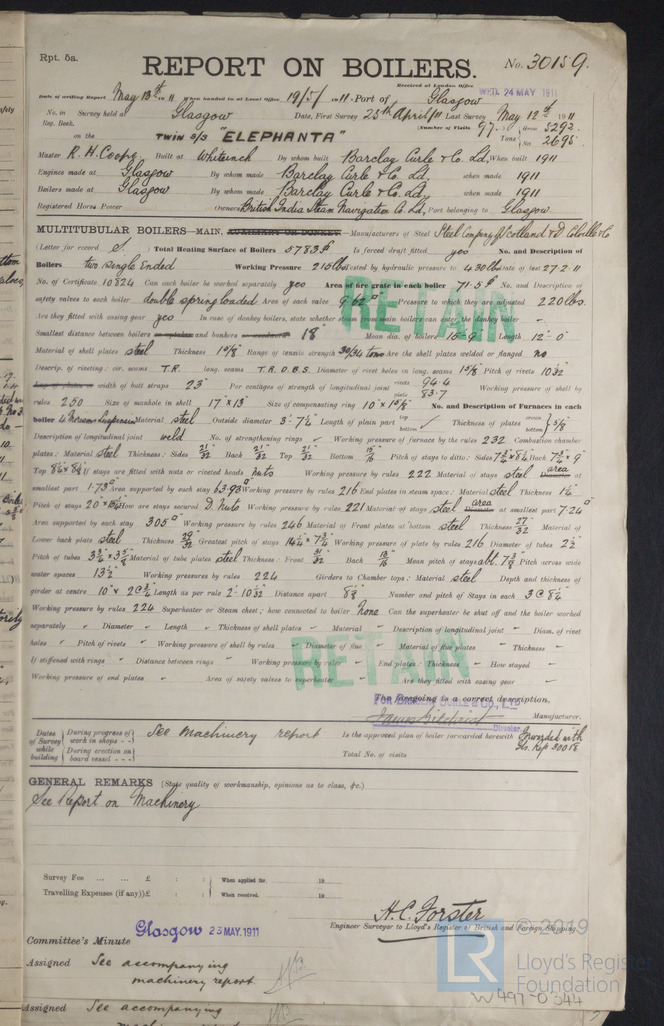 Rpt. 5a.
REPORT ON BOILERS.
No. 30159.
Received at London Office WED. 24 MAY 1911
Date of writing Report May 13th 1911 When handed in at Local Office 19/5/1911. Port of Glasgow
No. in Reg. Book. Survey held at Glasgow Date, First Survey 25th April/11 Last Survey May 12th 1911
(Number of Visits 97.) Tons { Gross 5292. Net 2695.
on the TWIN S/S "ELEPHANTA"
Master R. H. Cooper Built at Whiteinch By whom built Barclay Curle & Co. Ld. When built 1911
Engines made at Glasgow By whom made Barclay Curle & Co. Ld. when made 1911
Boilers made at Glasgow By whom made Barclay Curle & Co. Ld. when made 1911
Registered Horse Power Owners British India Steam Navigation Co. Ld. Port belonging to Glasgow.
MULTITUBULAR BOILERS—MAIN, Manufacturers of Steel Steel Company of Scotland & D. Colville & Co
(Letter for record S) Total Heating Surface of Boilers 5783 Is forced draft fitted yes No. and Description of
Boilers two single ended Working Pressure 215 lbs Tested by hydraulic pressure to 430 lbs Date of test 27.2.11
No. of Certificate 10824 Can each boiler be worked separately yes Area of fire grate in each boiler 71.5 No. and Description of
safety valves to each boiler double spring loaded Area of each valve 9.62 Pressure to which they are adjusted 220 lbs.
Are they fitted with easing gear yes In case of donkey boilers, state whether steam from main boilers can enter the donkey boiler —
Smallest distance between boilers and bunkers 18" Mean dia. of boilers 16-9 Length 12-0
Material of shell plates steel Thickness 1 5/8 Range of tensile strength 30/34 tons Are the shell plates welded or flanged no
Descrip. of riveting: cir. seams T.R. long. seams T.R.D.B.S. Diameter of rivet holes in long. seams 1 5/8 Pitch of rivets 10 1/32
width of butt straps 23" Per centages of strength of longitudinal joint rivets 94.4 plates 83.7 Working pressure of shell by
rules 230 Size of manhole in shell 17" x 13" Size of compensating ring 10" x 1 5/8" No. and Description of Furnaces in each
boiler 4 Material steel Outside diameter 3'-7 1/4 Length of plain part top bottom Thickness of plates crown bottom } 5/8
Description of longitudinal joint weld No. of strengthening rings Working pressure of furnace by the rules 232 Combustion chamber
plates: Material steel Thickness: Sides 21/32 Back 21/32 Top 21/32 Bottom 15/16 Pitch of stays to ditto: Sides 7 3/4 x 8 1/4 Back 7 3/4 x 9
Top 8 1/4 x 8 1/4 If stays are fitted with nuts or riveted heads nuts Working pressure by rules 222 Material of stays steel area at
smallest part 1.73 Area supported by each stay 63.93 Working pressure by rules 216 End plates in steam space: Material steel Thickness 1 1/4
Pitch of stays 20" x How are stays secured D. Nuts Working pressure by rules 221 Material of stays steel area at smallest part 7.24
Area supported by each stay 305 Working pressure by rules 246 Material of Front plates at bottom steel Thickness 27/32 Material of
Lower back plate steel Thickness 29/32 Greatest pitch of stays 14 1/4 x 7 3/4 Working pressure of plate by rules 216 Diameter of tubes 2 1/2
Pitch of tubes 3 3/4 x 3 5/8 Material of tube plates steel Thickness: Front 31/32 Back 13/16 Mean pitch of stays abt. 7 3/8 Pitch across wide
water spaces 13 1/2 Working pressures by rules 224 Girders to Chamber tops: Material steel Depth and thickness of
girder at centre 10" x 2 @ 3/4 Length as per rule 2-10 1/32 Distance apart 8 3/8 Number and pitch of Stays in each 3 @ 8 1/4
Working pressure by rules 224 Superheater or Steam chest; how connected to boiler None Can the superheater be shut off and the boiler worked
separately Diameter Length Thickness of shell plates Material Description of longitudinal joint Diam. of rivet
holes Pitch of rivets Working pressure of shell by rules Diameter of flue Material of flue plates Thickness
If stiffened with rings Distance between rings Working pressure by rules End plates: Thickness How stayed
Working pressure of end plates Area of safety valves to superheater Are they fitted with easing gear
RETAIN
RETAIN
The foregoing is a correct description,
FOR BARCLAY CURLE & CO., LTD
James Gilchrist Manufacturer.
Director.
Dates of Survey while building { During progress of work in shops - - } { During erection on board vessel - - - } See Machinery report Is the approved plan of boiler forwarded herewith Forwarded with Gls. Rep 30018
Total No. of visits
GENERAL REMARKS (State quality of workmanship, opinions as to class, &c.)
See Report on Machinery
Survey Fee ... ... £ : : When applied for, 19
Travelling Expenses (if any) £ : : When received, 19
H.C. Forster
Engineer Surveyor to Lloyd's Register of British and Foreign Shipping.
Committee's Minute Glasgow 23 MAY. 1911
Assigned See accompanying
machinery report.
© 2019
LR
Lloyd's Register
Foundation
W497-0344
Assigned See accompanying